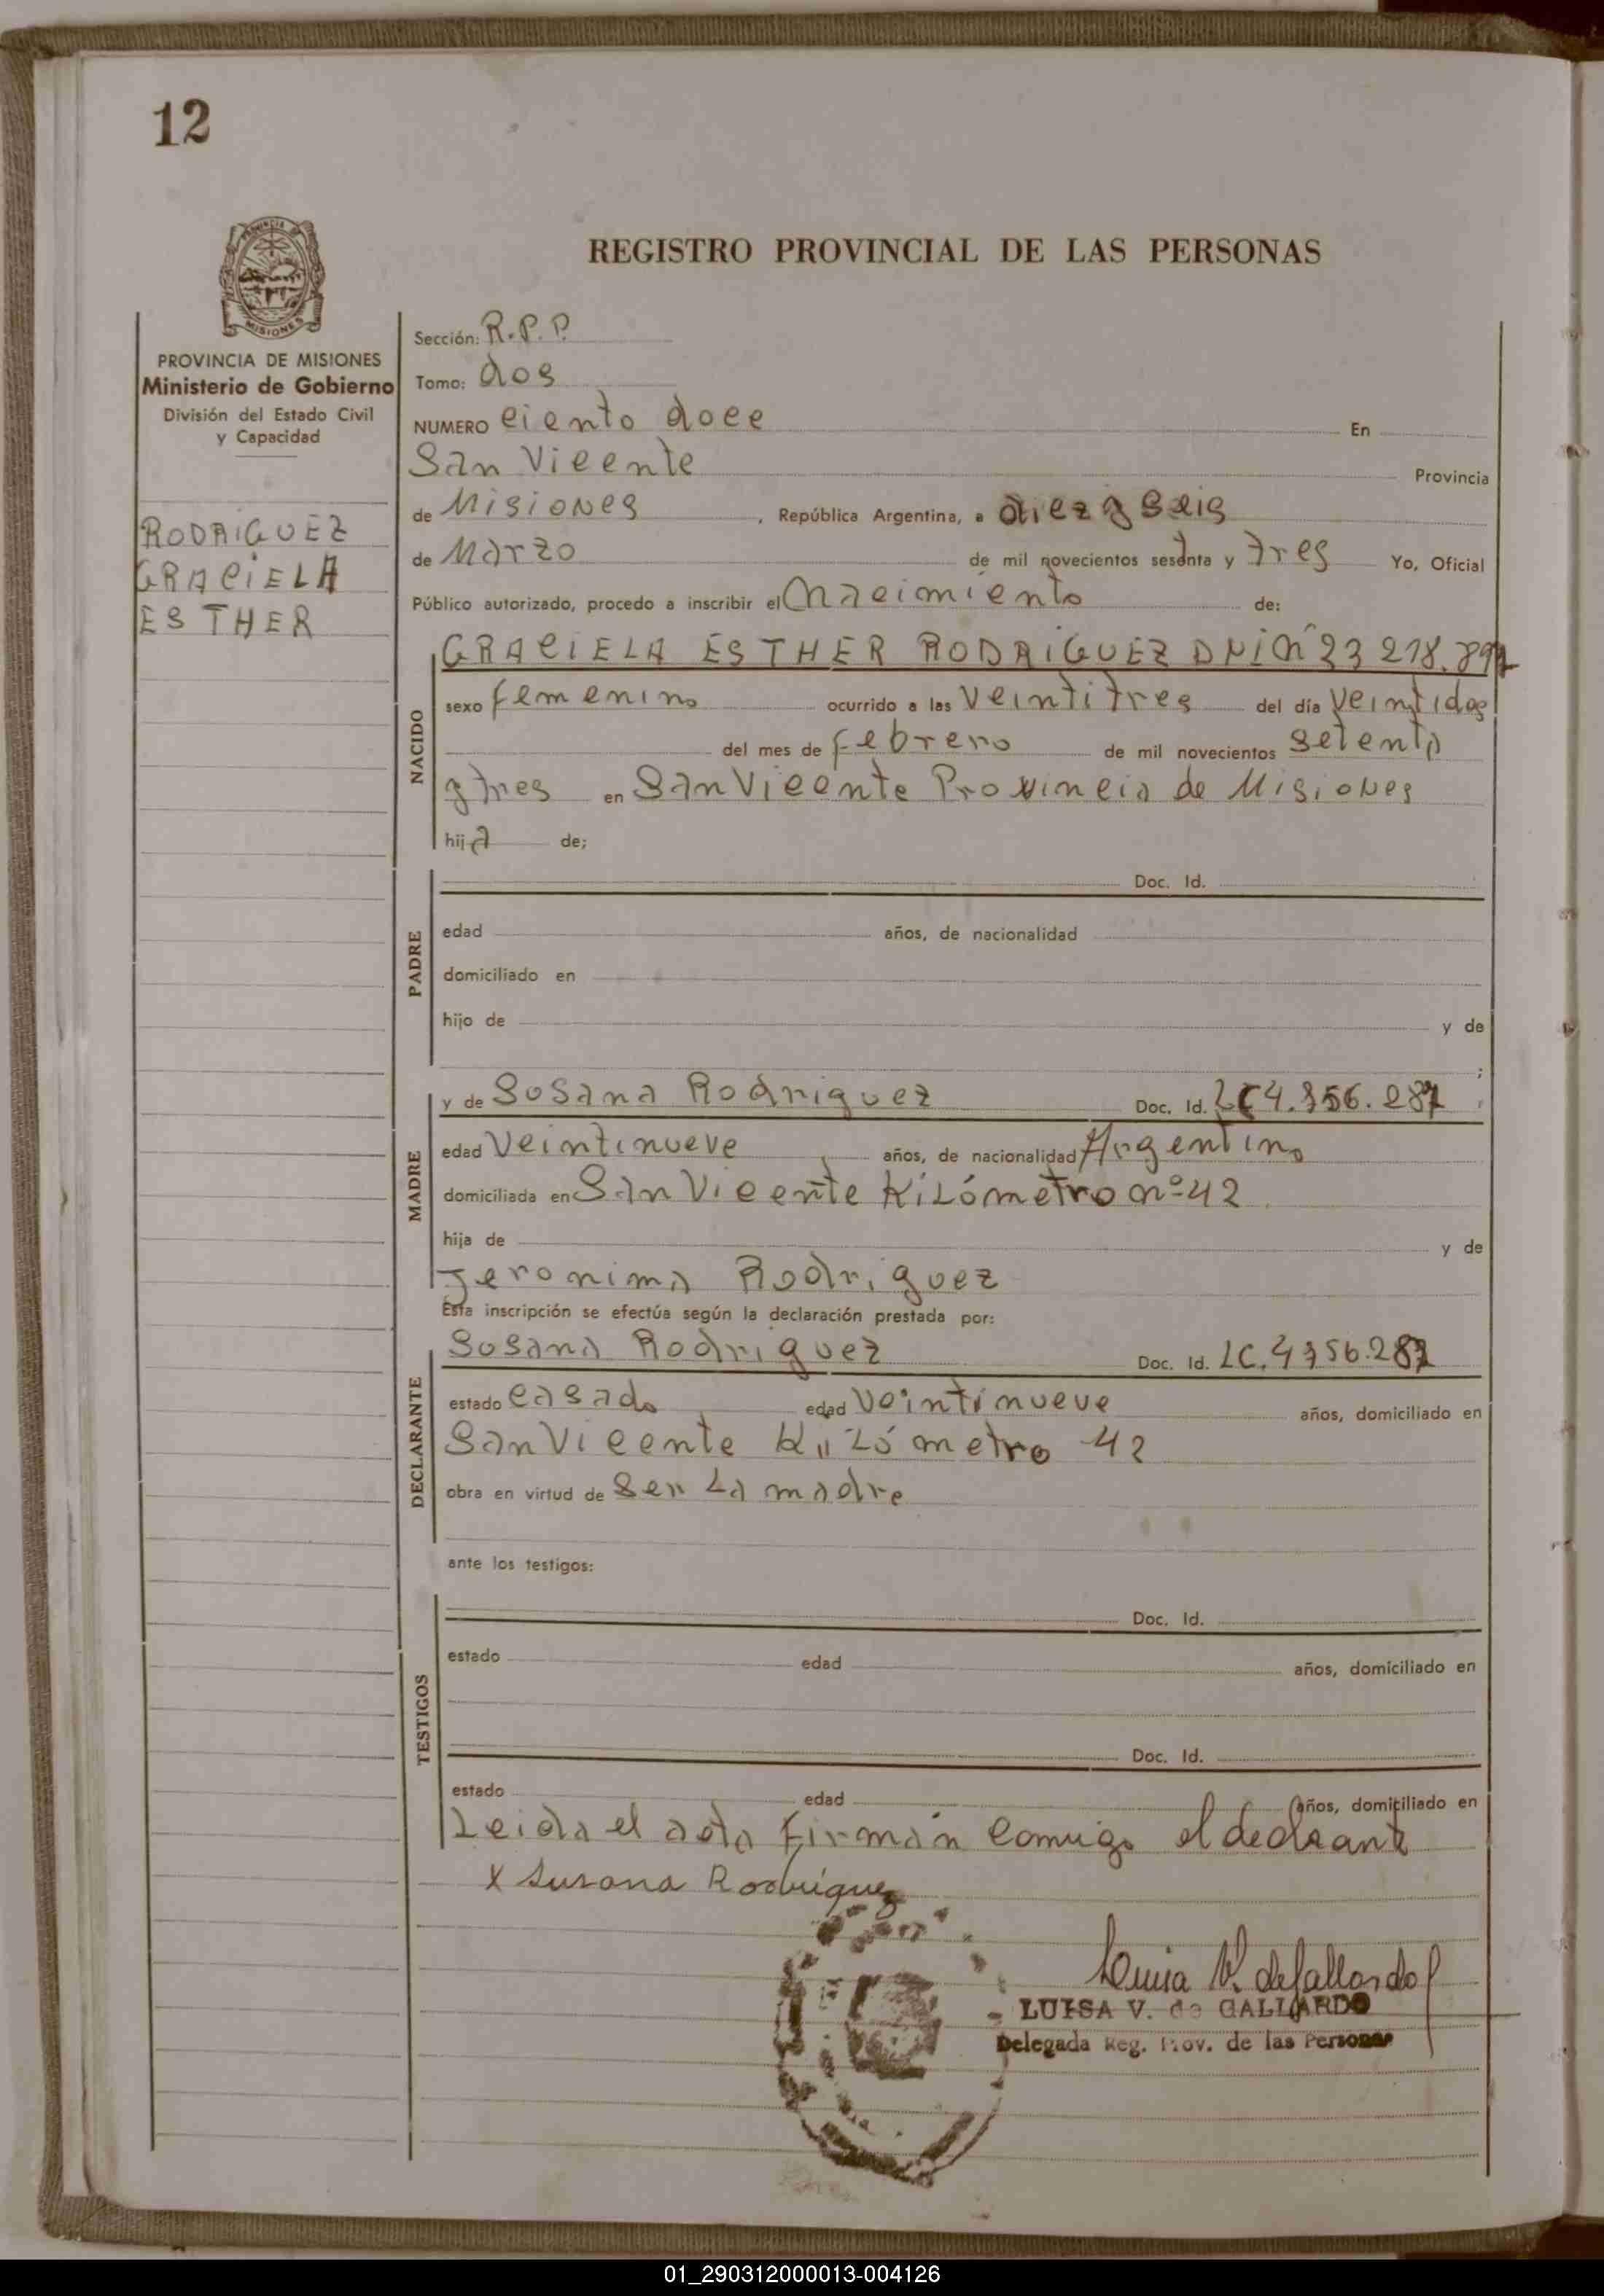 12
REGISTRO PROVINCIAL DE LAS PERSONAS
MISIONES
PROVINCIA DE MISIONES
Ministerio de Gobierno
División del Estado Civil
y Capacidad
RODRIGUEZ
GRACIELA
ESTHER
Sección: R.P.P.
Tomo: dos
NUMERO ciento doce En
San Vicente Provincia
de Misiones, República Argentina, a diez y seis
de Marzo de mil novecientos setenta y tres Yo, Oficial
Público autorizado, procedo a inscribir el Nacimiento de:
NACIDO
GRACIELA ESTHER RODRIGUEZ DNI Nº 23 218.
sexo femenino ocurrido a las veintitres del día veintidos
del mes de febrero de mil novecientos setenta
y tres en San Vicente Provincia de Misiones
hija de;
PADRE
Doc. Id.
edad años, de nacionalidad
domiciliado en
hijo de y de
;
MADRE
y de Sosana Rodriguez Doc. Id. LC
edad veintinueve años, de nacionalidad Argentino
domiciliada en San Vicente Kilómetro nº 42
hija de y de
Jeronima Rodriguez
Esta inscripción se efectúa según la declaración prestada por:
DECLARANTE
Sosana Rodriguez Doc. Id. LC.
estado casado edad veintinueve años, domiciliado en
San Vicente Kilómetro 42
obra en virtud de ser La madre
ante los testigos:
TESTIGOS
Doc. Id.
estado edad años, domiciliado en
Doc. Id.
estado edad años, domiciliado en
Leida el acta firman comigo el
x Susana Rodriguez
Luisa V. de Gallardo
LUISA V. de GALLARDO
Delegada Reg. Prov. de las Personas
01_290312000013-004126